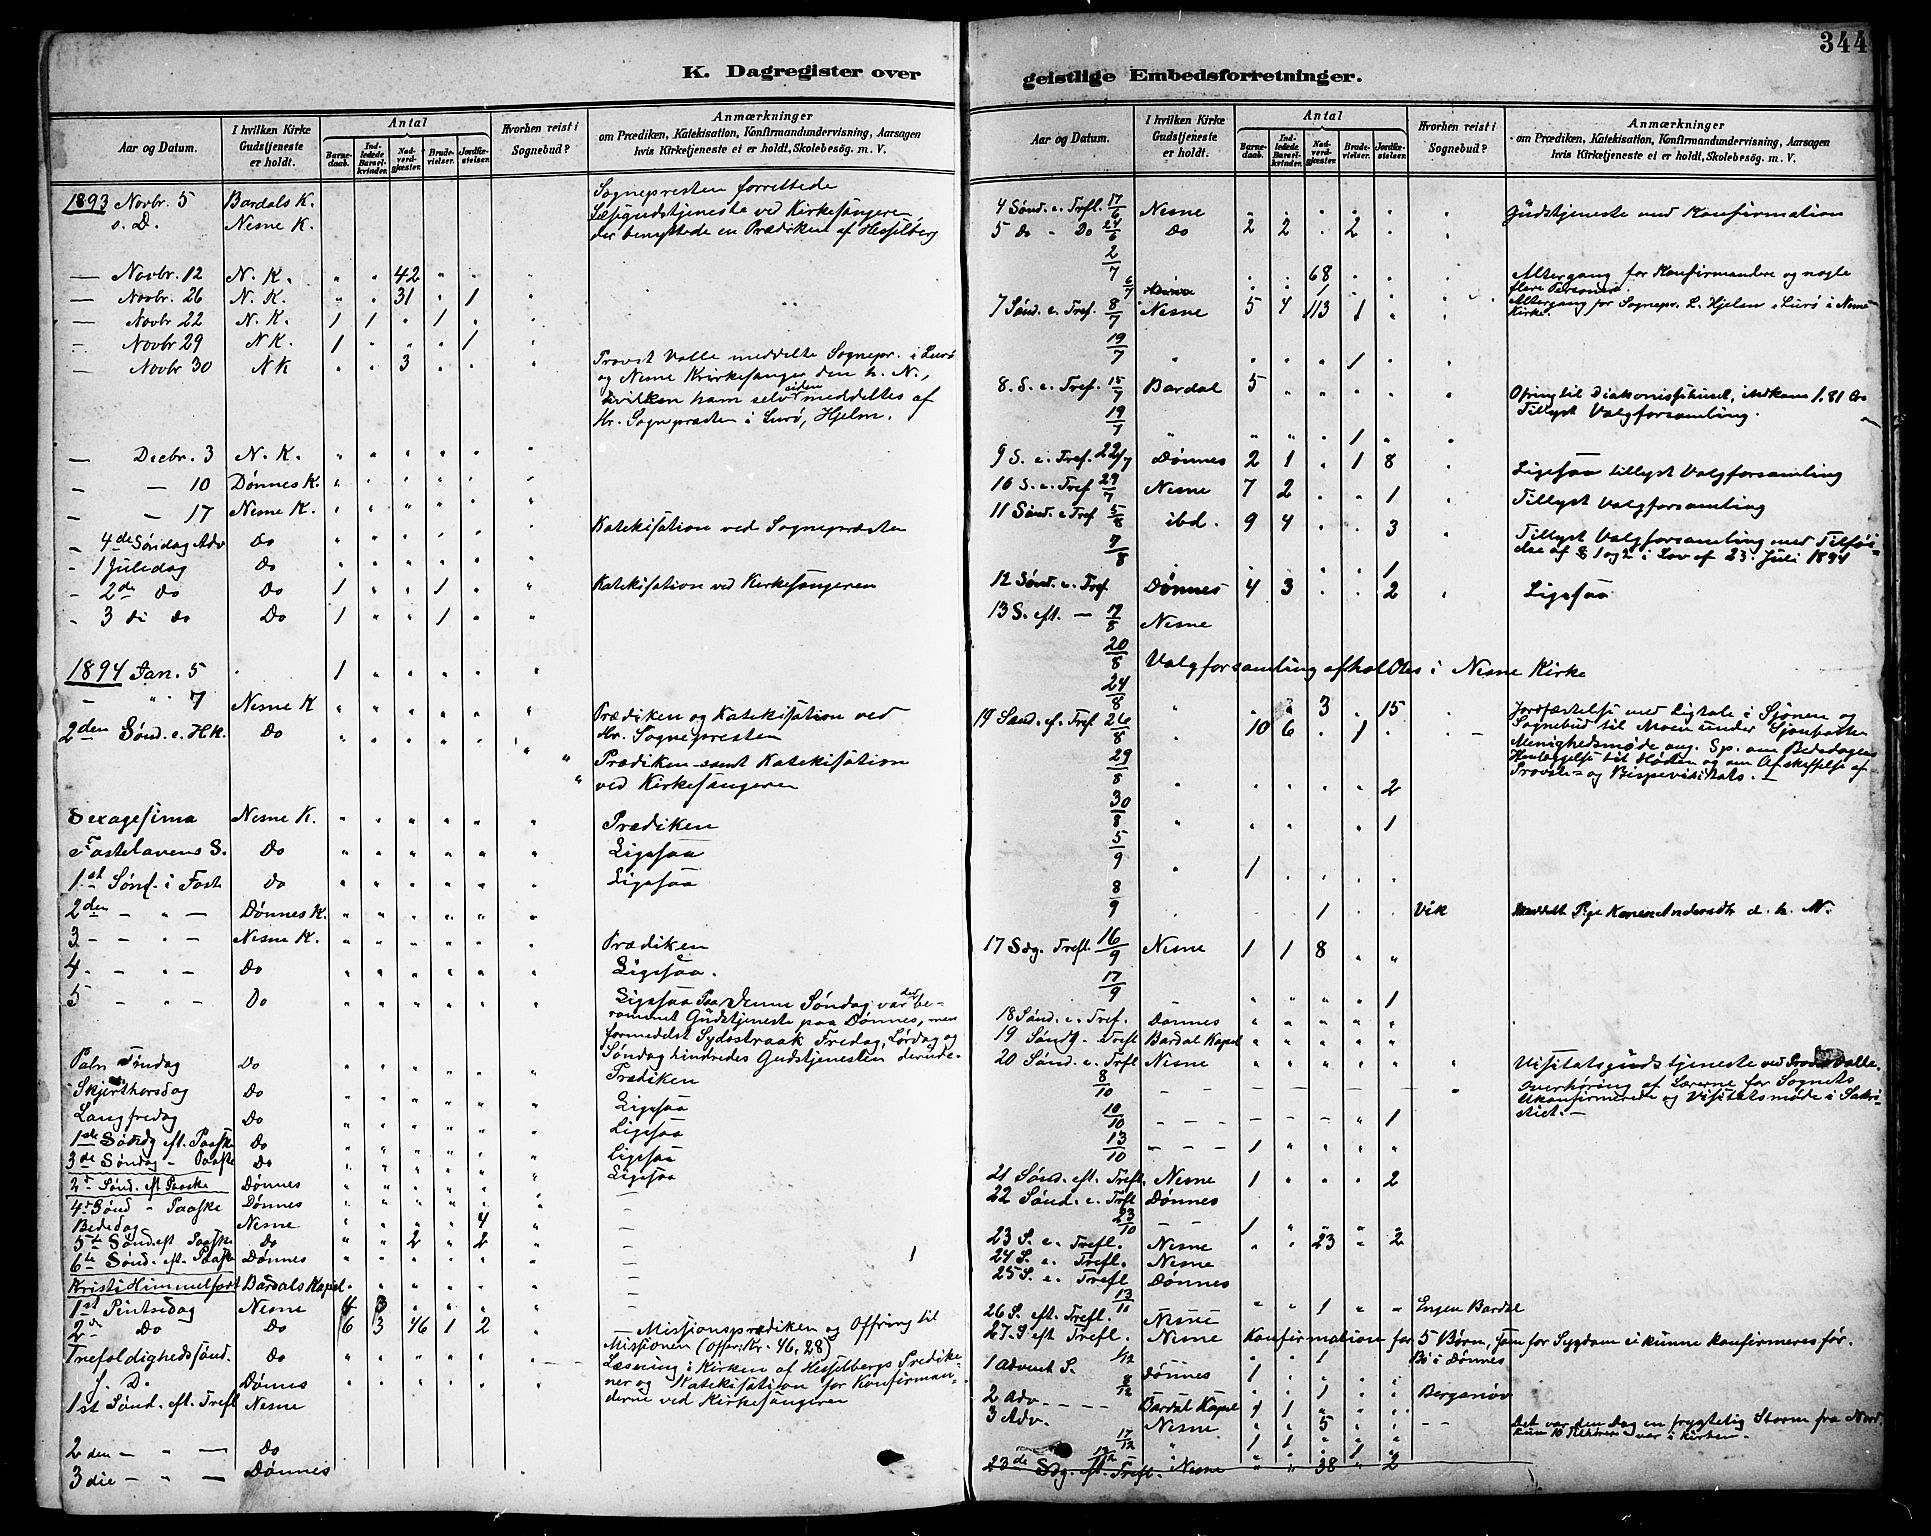 344
K. Dagregister over
geistlige Embedsforretninger.
Aar og Datum.
I hvilken Kirke Gudstjeneste er holdt.
Antal
Barnedaab.
Indledede Barselkvinder.
Nadverdgjæster.
Brudevielser.
Jordfæstelser.
Hvorhen reist i Sognebud?
Anmærkninger
om Prædiken, Katekisation, Konfirmandundervisning, Aarsagen
hvis Kirketjeneste ei er holdt, Skolebesøg. m. V.
1893 Novbr. 5 Bardals K. Sognepresten forrettede
s. D. Nesne K. Læsegudstjeneste ved Kirkesangeren,
der benyttede en Prædiken af Hesselberg
— Novbr. 12 N. K. " " 42 " "
— Novbr. 26 N. K. " " 31 " 1
— Novbr 22 N. K. 1 1 " 1 "
— Novbr 29 N K. 1 " " " 1
— Novbr 30 N K " " 3 " " Provst Valle meddelte Sognepr. i Lurø
og Nesne Kirkesanger den h. N.,
hvilken ham selv siden meddeltes af
Hr. Sognepræsten i Lurø, Hjelm.
— Decbr. 3 N. K.
— — 10 Dønnes K.
— — 17 Nesne K.
— 4de Søndag Adv Do Katekisation ved Sognepræsten
- 1 Juledag Do
- 2de Do Do 1 " " 1 " Katekisation ved Kirkesangeren
- 3 di do Do 1 " " 1 "
1894 Jan. 5 " 1
— " 7 Nesne K
2den Sønd. e. H.K. Do Prædiken og Katekisation ved
Hr. Sognepresten
" Prædiken samt Katekisation
" ved Kirkesangeren
Sexagesima Nesne K. Prædiken
Fastelavens S. Do Ligesaa
1st Sønd. i Fast Do Ligesaa
2den — " — Dønnes K.
3 — — " — Nesne K. Prædiken
4. — " — Do Ligesaa.
5 — " — Do Ligesaa Paa denne Søndag var der be-
rammet Gudstjeneste paa Dønnes, men
formedelst Sydostraak Fredag, Lørdag og
Søndag hindredes Gudstjenesten derude-
Palmesøndag Do Prædiken
Skjærthorsdag Do Ligesaa
Langfredag Do Ligesaa
1de Søndg eft. Paaske Do Ligesaa
3de Søndag - Paaske Do Ligesaa
2d Sønd. eft Paaske Dønnes
4de Sønd " Paaske Dønnes
Bededag Nesne 4
5te Sønd. eft Paaske Do 2 " 2
6te Sønd. eft. Paaske Dønnes
Kristi Himmelfart Bardals Kapel
1st Pintsedag Nesne 4 3
2d Do Do 6 3 46 1 2 — Missionsprædiken og Offring til
Missionen (Offer: Kr. 46,28)
Trefoldighedssønd. Do Læsning i Kirken af Hesselbergs Prædike-
s. D. Dønnes ner og Katekisation for Konfirman-
1st Sønd. eft. Trefl Nesne derne ved Kirkesangeren
2 den — " — Do
3 die — " — Dønnes
Aar og Datum.
I hvilken Kirke Gudstjeneste er holdt.
Antal
Barnedaab.
Indledede Barselkvinder.
Nadverdgjæster.
Brudevielser.
Jordfæstelser.
Hvorhen reist i Sognebud?
Anmærkninger
om Prædiken, Katekisation, Konfirmandundervisning, Aarsagen
hvis Kirketjeneste ei er holdt, Skolebesøg. m. V.
4 Sønd. e. Trefl. 17/6 Nesne Gudstjeneste med Konfirmation
5 Do " Do 24/6 Do 2 2 " 2
2/7 68 Altergang for Konfirmandere og nogle
flere Personer.
6/7 1 Altergang for Sognepr. L. Hjelm i Lurø i Nesne
7 Sønd. e. Tref. 8/7 Nesne 5 4 113 1 Kirke.
19/7 " 1
8. S. e. Tref. 15/7 Bardal 5 Ofring til Diakonissehuset, indkom 1,81 Øre
Tillyst Valgforsamling.
19/7 " 1
9 S. e. Tref. 22/7 Dønnes 2 1 " 1 8 Ligesaa tillyst Valgforsamling
10 S. e. Tref 29/7 Nesne 7 2 " " 1 Tillyst Valgforsamling
11 Sønd. e Tref 5/8 ibd. 9 4 " " 3 Tillyst Valgforsamling med Tilføi-
else af § 1 og 2 i Lov af 23. Juli 1894
7/8 1
12 Sønd. e. Tref. Dønnes 4 3 " " 2 Ligesaa
13 S. eft. — 19/8 Nesne
20/8 Valgforsamling afholdtes i Nesne Kirke
24/8 " " 3 " 15 Jordfæstelse med Ligtale i Sjonen og
Sognebud til Moen under
19 Sønd. ef. Tref 26/8 " 10 6 " 1 Menighedsmøde ang. Sp. om Bededagens
Henlæggelse til Høsten og om Afskeffelse af
29/8 " 2 Provste- og Bispevisitats. —
30/8 " 1
5/9 " 1
8/9 " " 1 Vik meddelt Pige Karen Andersdt. d. h. N.
17 Sdg. Trefl. 16/9 Nesne 1 1 8
17/9 1
18 Sønd. e. Tref. Dønnes
19 Søndg. - Trefl Bardal Kapel
20 Sønd. e. Trefl Nesne Visitatsgudstjeneste ved Provst Valle.
8/10 Overhøring af Lærerne for Sognets
Ukonfirmerede og Visitatsmøde i Sakri-
10/10 1 stiet. —
13/10 1
21 Sønd. eft. Trefl. Nesne 1 " " " 2
22 Sønd. e. Trefl Dønnes
23/10 — 1
23 S. e. Trefl. Nesne " " 23 " 2
24 S. e. Trefl. Nesne
25 S. e. Trefl Dønnes
13/11 1 Engen Bardal
26 S. eft. Trefl. Nesne
27. S eft Trefl. Nesne Konfirmation for 5 Børn, som for Sygdom ei kunne konfirmeres før.
1/12 1 Bø i Dønnes
1 Advent S. Dønnes 1
8/12 1 Bergsnøv
2 Adv — — — Bardal Kapel 1 1
3 Adv. Nesne 5 Det var den Dag en frygtelig Storm fra Nord.
17/12 " 1 1 kun 10 var i Kirken. —
12/12 1
23de Sdg. eft. Trefl. Nesne " " 38 " 2